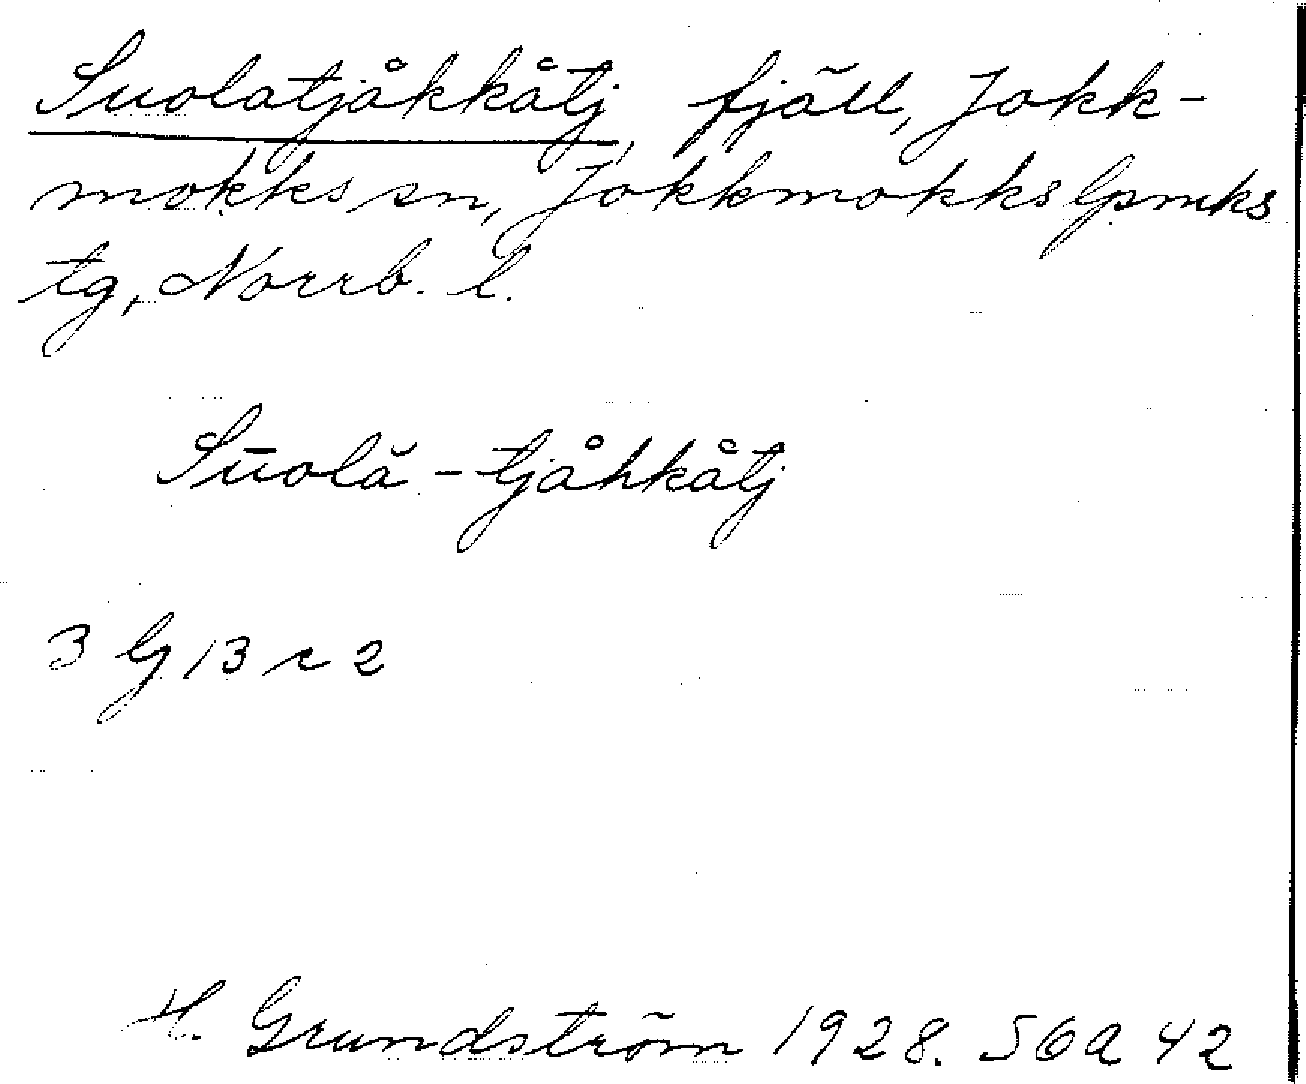 Suolatjåkkåtj, fjäll, Jokk-
mokks sn, Jokkmokks lpmks
tg, Norrb. l.
Sūolă-tjåhkåtj
3 G 13 r 2
H. Grundström 1928. S6a 42